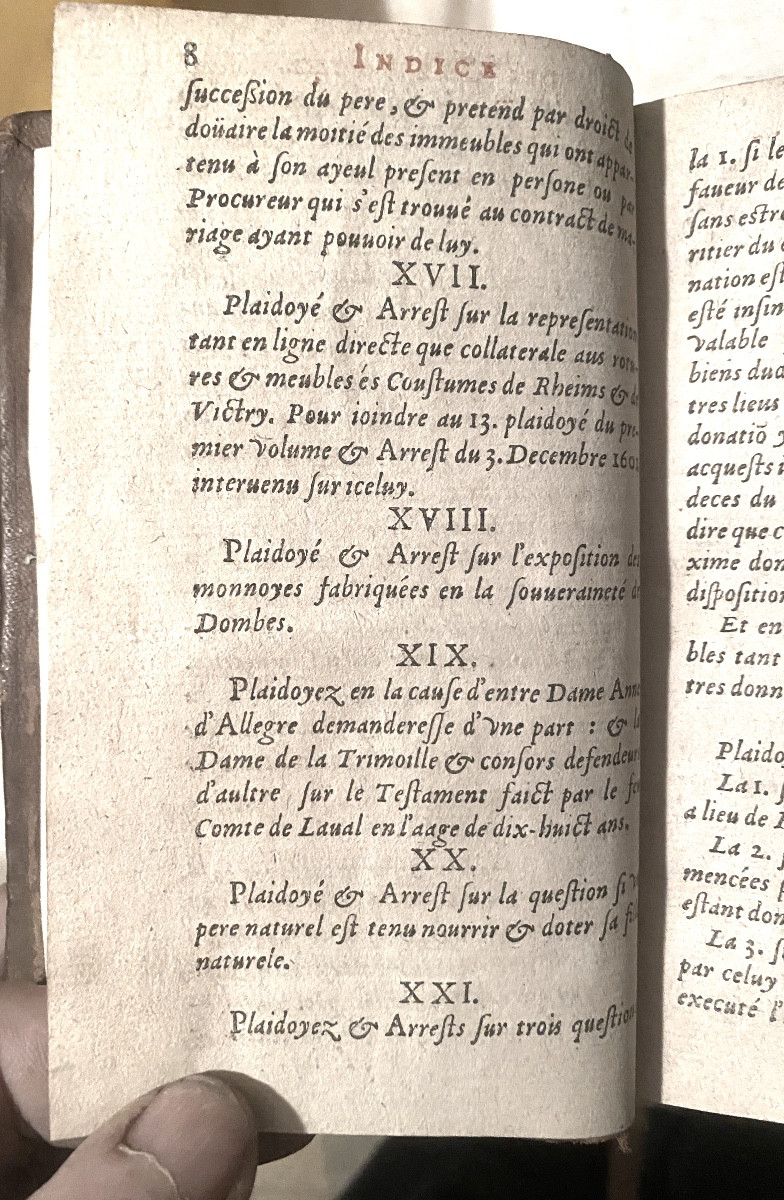 8 INDICE
ſucceſſion du pere, & pretend par droict
doüaire la moitié des immeubles qui ont appar-
tenu à ſon ayeul preſent en perſone ou par
Procureur qui s'eſt trouué au contract de ma-
riage ayant pouuoir de luy.
XVII.
Plaidoyé & Arreſt ſur la repreſentation
tant en ligne directe que collaterale aus rotu-
res & meubles és Couſtumes de Rheims &
Victry. Pour ioindre au 13. plaidoyé du pre-
mier volume & Arreſt du 3. Decembre
interuenu ſur iceluy.
XVIII.
Plaidoyé & Arreſt ſur l'expoſition
monnoyes fabriquées en la ſouueraineté
Dombes.
XIX.
Plaidoyez en la cauſe d'entre Dame Anne
d'Allegre demandereſſe d'vne part : &
Dame de la Trimoille & conſors defendeurs
d'aultre ſur le Teſtament faict par le
Comte de Laual en l'aage de dix-huict ans.
XX.
Plaidoyé & Arreſt ſur la queſtion ſi
pere naturel eſt tenu nourrir & doter ſa
naturele.
XXI.
Plaidoyez & Arreſts ſur trois queſtions
la 1. ſi le
faueur de
ſans eſtre
ritier du
nation eſt
eſté inſin
valable
biens
tres lieus
donatiō
acqueſts
deces du
dire que
xime don
diſpoſition
Et en
bles tant
tres donn
Plaido
La 1.
a lieu de
La 2.
mencées
eſtant don
La 3.
par celuy
executé l'